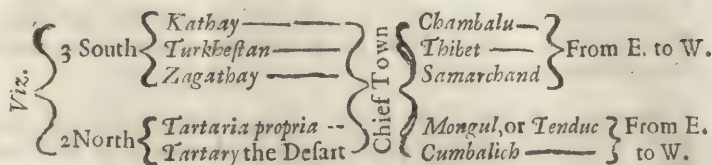 Viz.
3 South
Kathay
Turkheſtan
Zagathay
2 North
Tartaria propria --
Tartary the Deſart
Chief Town
Chambalu
Thibet
Samarchand
From E. to W.
Mongul, or Tenduc
Cumbalich
From E.
to W.